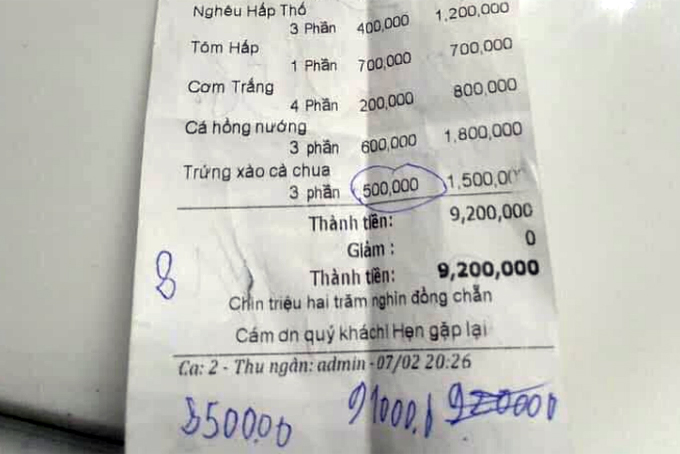 Nghêu Hấp Thố
3 Phần 400,000 1,200,000
Tóm Hấp
1 Phần 700,000 700,000
Cơm Trắng
4 Phần 200,000 800,000
Cá hồng nướng
3 phần 600,000 1,800,000
Trứng xào cà chua
3 phần 500,000 1,500,00
Thành tiền: 9,200,000
Giảm : 0
8
Thành tiền: 9,200,000
Chín triệu hai trăm nghìn đồng chẵn
Cám ơn quý khách! Hẹn gặp lại
Ca: 2 - Thu ngân: admin - 07/02 20:26
850000 91000